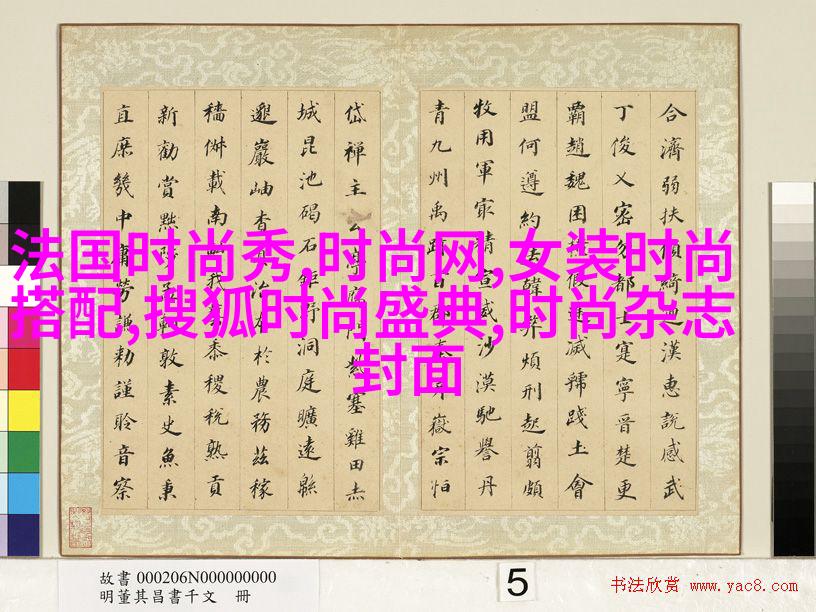 合濟弱扶傾綺迴漢惠說感武
丁俊乂密勿士寔寧晉楚更
霸趙魏困橫假途滅虢踐土會
盟何遵約法韓弊煩刑起翦頗
牧用軍最精宣威沙漠馳譽丹
青九州禹跡百郡秦并嶽宗恒
岱禪主云亭門紫塞雞田赤
城昆池碣石鉅野洞庭曠遠緜
邈巖岫杳治本於農務茲稼
穡俶載南畝我黍稷稅熟貢
新勸賞黜陟孟軻敦素史魚秉
直庶幾中庸勞謙勅謹聆音察
法国时尚秀,时尚网,女装时尚
搭配,搜狐时尚盛典,时尚杂志
封面
故書 000206N000000000
明董其昌書千文 冊
5
书法欣赏 www.yac8.com